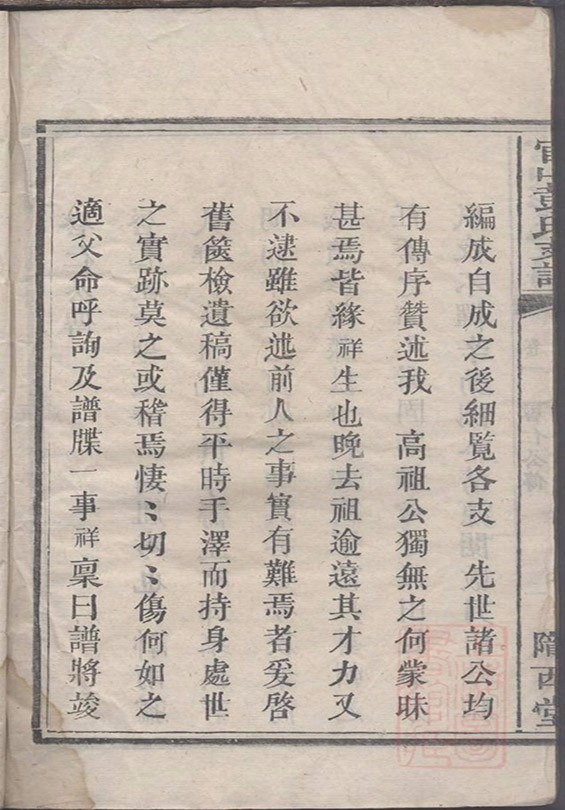 編成自成之後細覧各支　先世諸公均
有傳序贊述我　高祖公獨無之何蒙昧
甚焉皆緣祥生也晚去祖逾遠其才力又
不逮雖欲述前人之事實有難焉者爰啓
舊篋檢遺稿僅得平時手澤而持身處世
之實跡莫之或稽焉悽〻切〻傷何如之
適父命呼詢及譜牒一事祥稟曰譜將竣